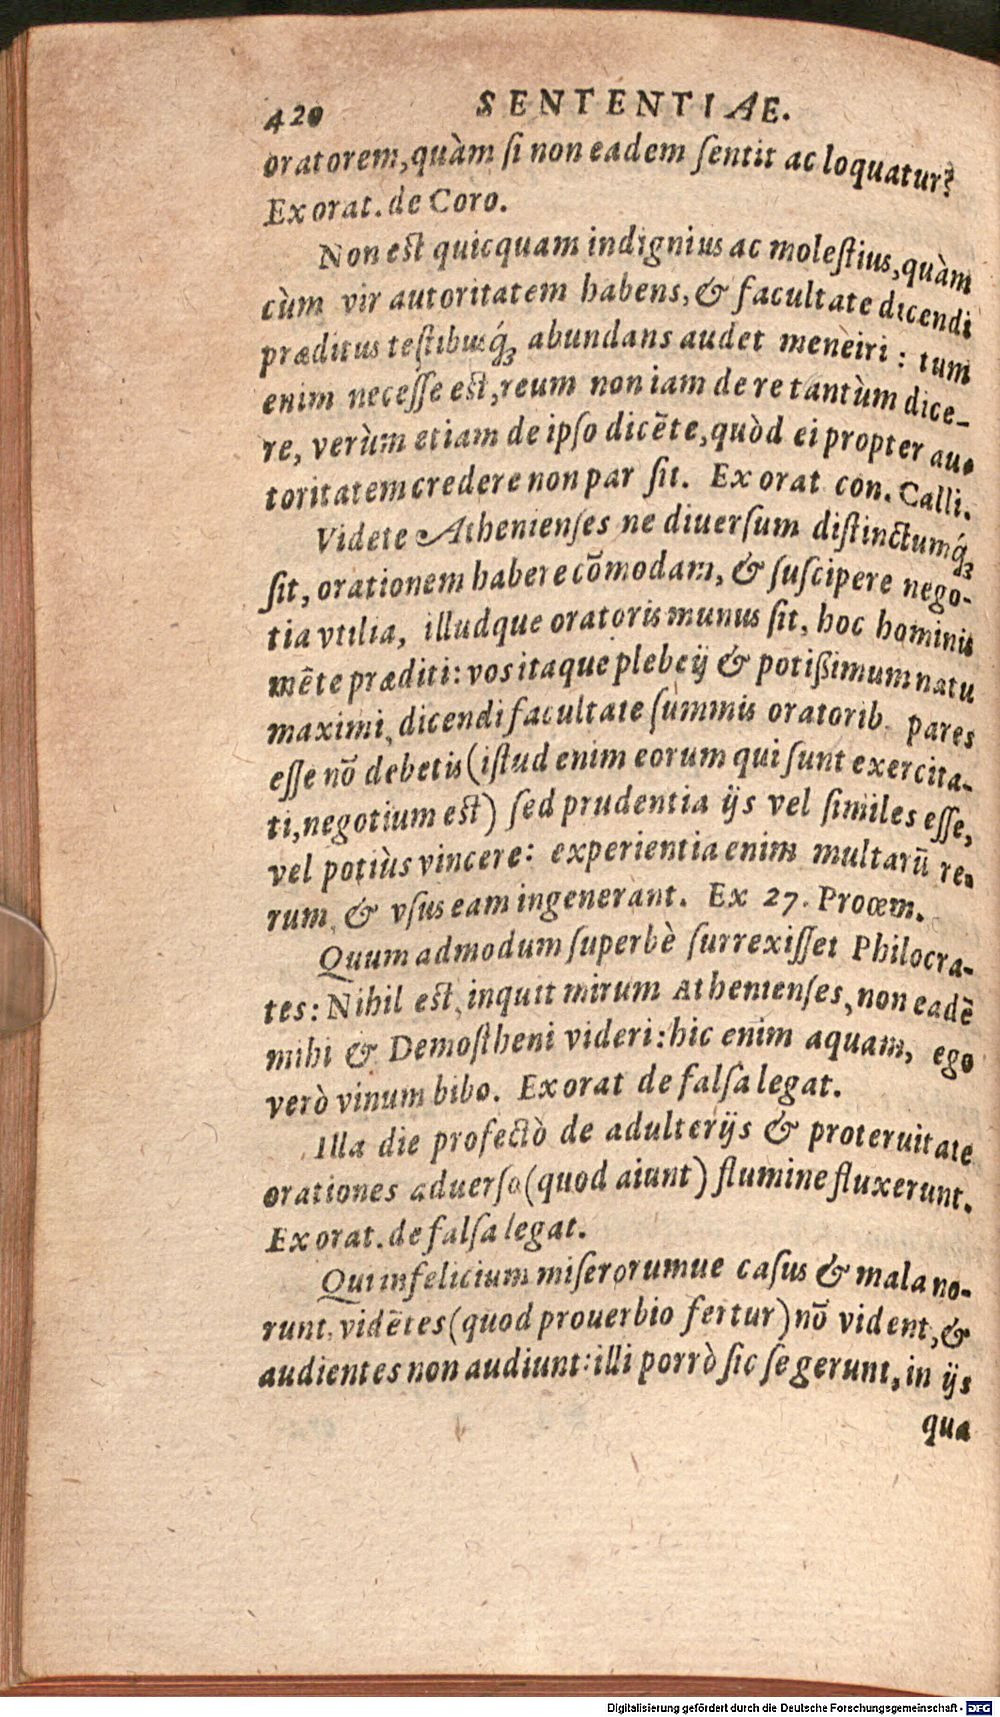 420 SENTENTIAE.
oratorem, quàm ſi non eadem ſentit ac loquatur?
Ex orat. de Coro.
Non est quicquam indignius ac moleſtius, quàm
cùm vir autoritatem habens, & facultate dicendi
præditus teſtibusq́ꝫ abundans audet meneiri: tum
enim neceſſe est, reum non iam de re tantùm dice-
re, verùm etiam de ipſo dicēte, quòd ei propter au-
toritatem credere non par ſit. Ex orat con. Calli.
Videte Athenienſes ne diuerſum diſtinctumq́ꝫ
ſit, orationem habere cōmodam, & ſuſcipere nego-
tia vtilia, illudque oratoris munus ſit, hoc hominis
mēte præditi: vos itaque plebeij & potißimum natu
maximi, dicendi facultate ſummis oratorib. pares
eſſe nō debetis (iſtud enim eorum qui ſunt exercita-
ti, negotium est) ſed prudentia ijs vel ſimiles eſſe,
vel potiùs vincere: experientia enim multarū re-
rum, & vſus eam ingenerant. Ex 27. Proœm.
Quum admodum ſuperbè ſurrexiſſet Philocra-
tes: Nihil est, inquit mirum Athenienſes, non eadē
mihi & Demoſtheni videri: hic enim aquam, ego
verò vinum bibo. Ex orat de falſa legat.
Illa die profectò de adulterijs & proteruitate
orationes aduerſo (quod aiunt) flumine fluxerunt.
Ex orat. de falſa legat.
Qui infelicium miſerorumue caſus & mala no-
runt, vidētes (quod prouerbio fertur) nō vident, &
audientes non audiunt: illi porrò ſic ſe gerunt, in ijs
qua
Digitalisierung gefördert durch die Deutsche Forschungsgemeinschaft - DFG